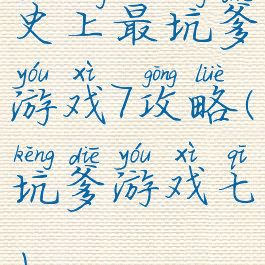 史上最坑爹
yóu xì gōng lüè
游戏7攻略(
kēng diē yóu xì qī
坑爹游戏七
)